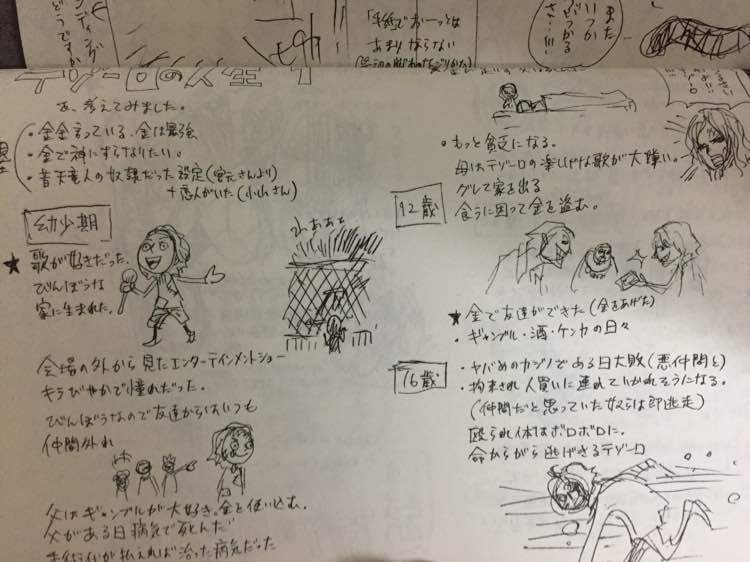 また
いつか
どうですか
「手紙」でおーっとは
あまりならない
テゾーロの人生！
を、考えてみました。
・金金言っている、金は最強
・金で神にすらなりたい。
・昔天竜人の奴隷だった設定(宮元さんより)
+恋人がいた(小山さん)
幼少期
★歌が好きだった。
びんぼうな
家に生まれた。
わああぁ
会場の外から見たエンターテインメントショー
キラびやかで憧れだった。
びんぼうなので友達からはいつも
仲間外れ
父はギャンブルが大好き。金を使い込む。
父がある日病気で死んだ
手術代が払えれば治った病気だった
・もっと貧乏になる。
母はテゾーロの楽しげな歌が大嫌い。
12歳
グレて家を出る
食うに困って金を盗む。
★金で友達ができた(金をあげた)
・ギャンブル・酒・ケンカの日々
16歳
・ヤバめのカジノである日大敗(悪仲間と)
・拘束され人買いに連れていかれそうになる。
(仲間だと思っていた奴らは即逃走)
殴られ体はボロボロに。
命からがら逃げきるテゾーロ